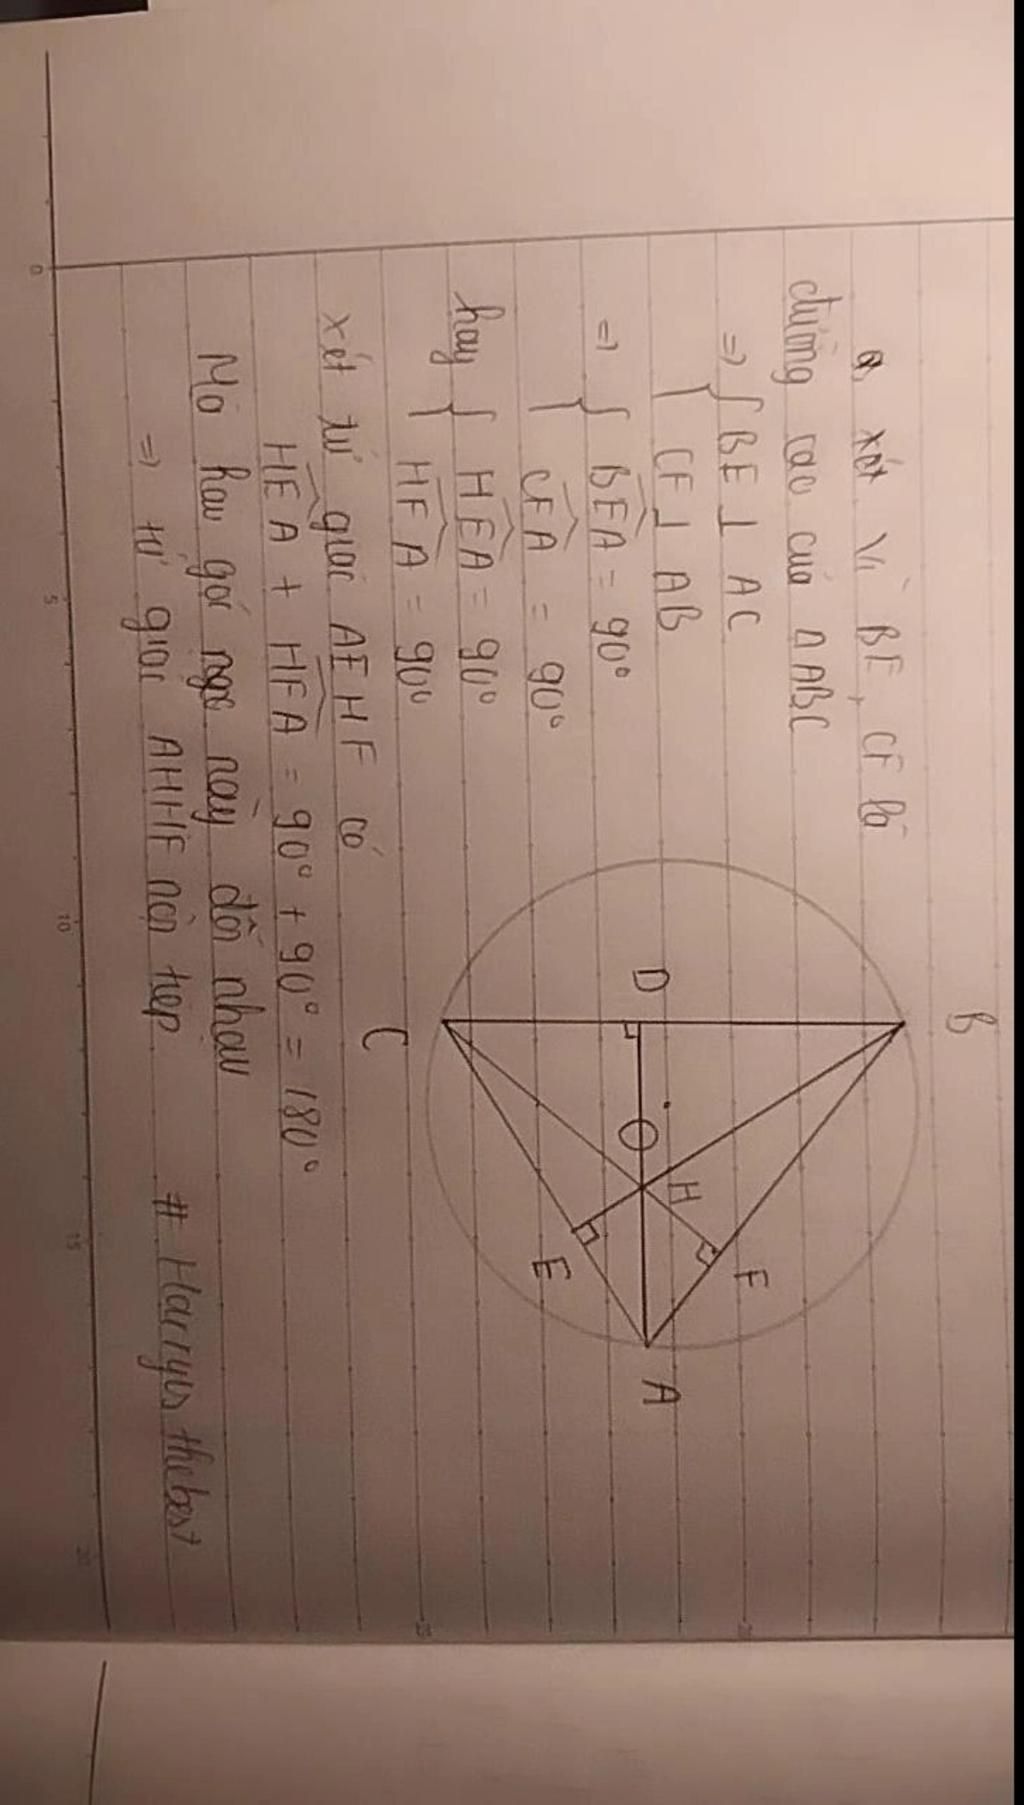 a, xét vì BE, CF là
đường cao của ΔABC
=> { BE ⊥ AC
{ CF ⊥ AB
=> { BEA = 90°
{ CFA = 90°
hay { HEA = 90°
{ HFA = 90°
xét tứ giác AEHF có
HEA + HFA = 90° + 90° = 180°
Mà hai góc này đối nhau
=> tứ giác AHHF nội tiếp
# Harryisthebest
B
D
C
O
H
E
F
A
0
5
10
15
20